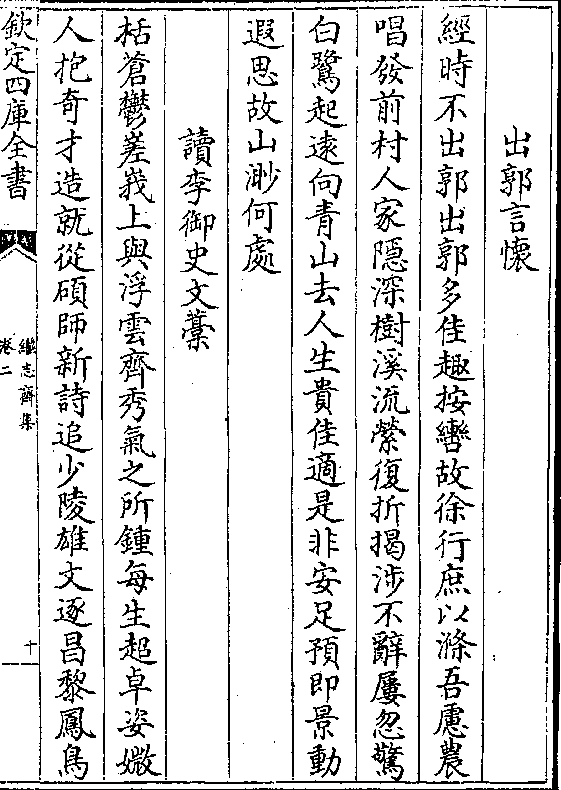 出郭言懷
經時不出郭出郭多佳趣按轡故徐行庶以滌吾慮農
唱發前村人家隠深樹溪流縈復折揭涉不辭屢忽驚
白鷺起逺向青山去人生貴佳適是非安足預即景動
遐思故山渺何處
讀李御史文藁
栝蒼鬱嵳峩上與浮雲齊秀氣之所鍾每生超卓姿媺
人抱奇才造就從碩師新詩追少陵雄文逐昌黎鳳鳥
欽定四庫全書
繼志齋集
卷二
十